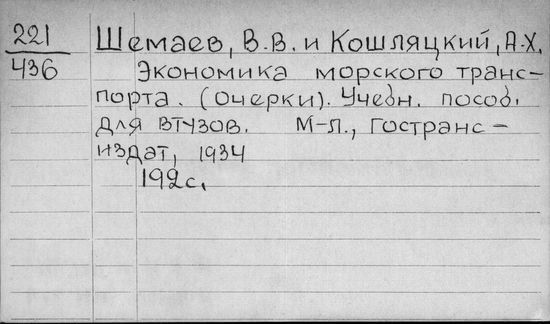 221
436
Шемаев, В.В. и Кошляцкий, А.Х.
Экономика морского транс-
порта. (Очерки). Учебн. пособ.
для втузов. М-Л., Гостранс-
издат, 1934
192с.